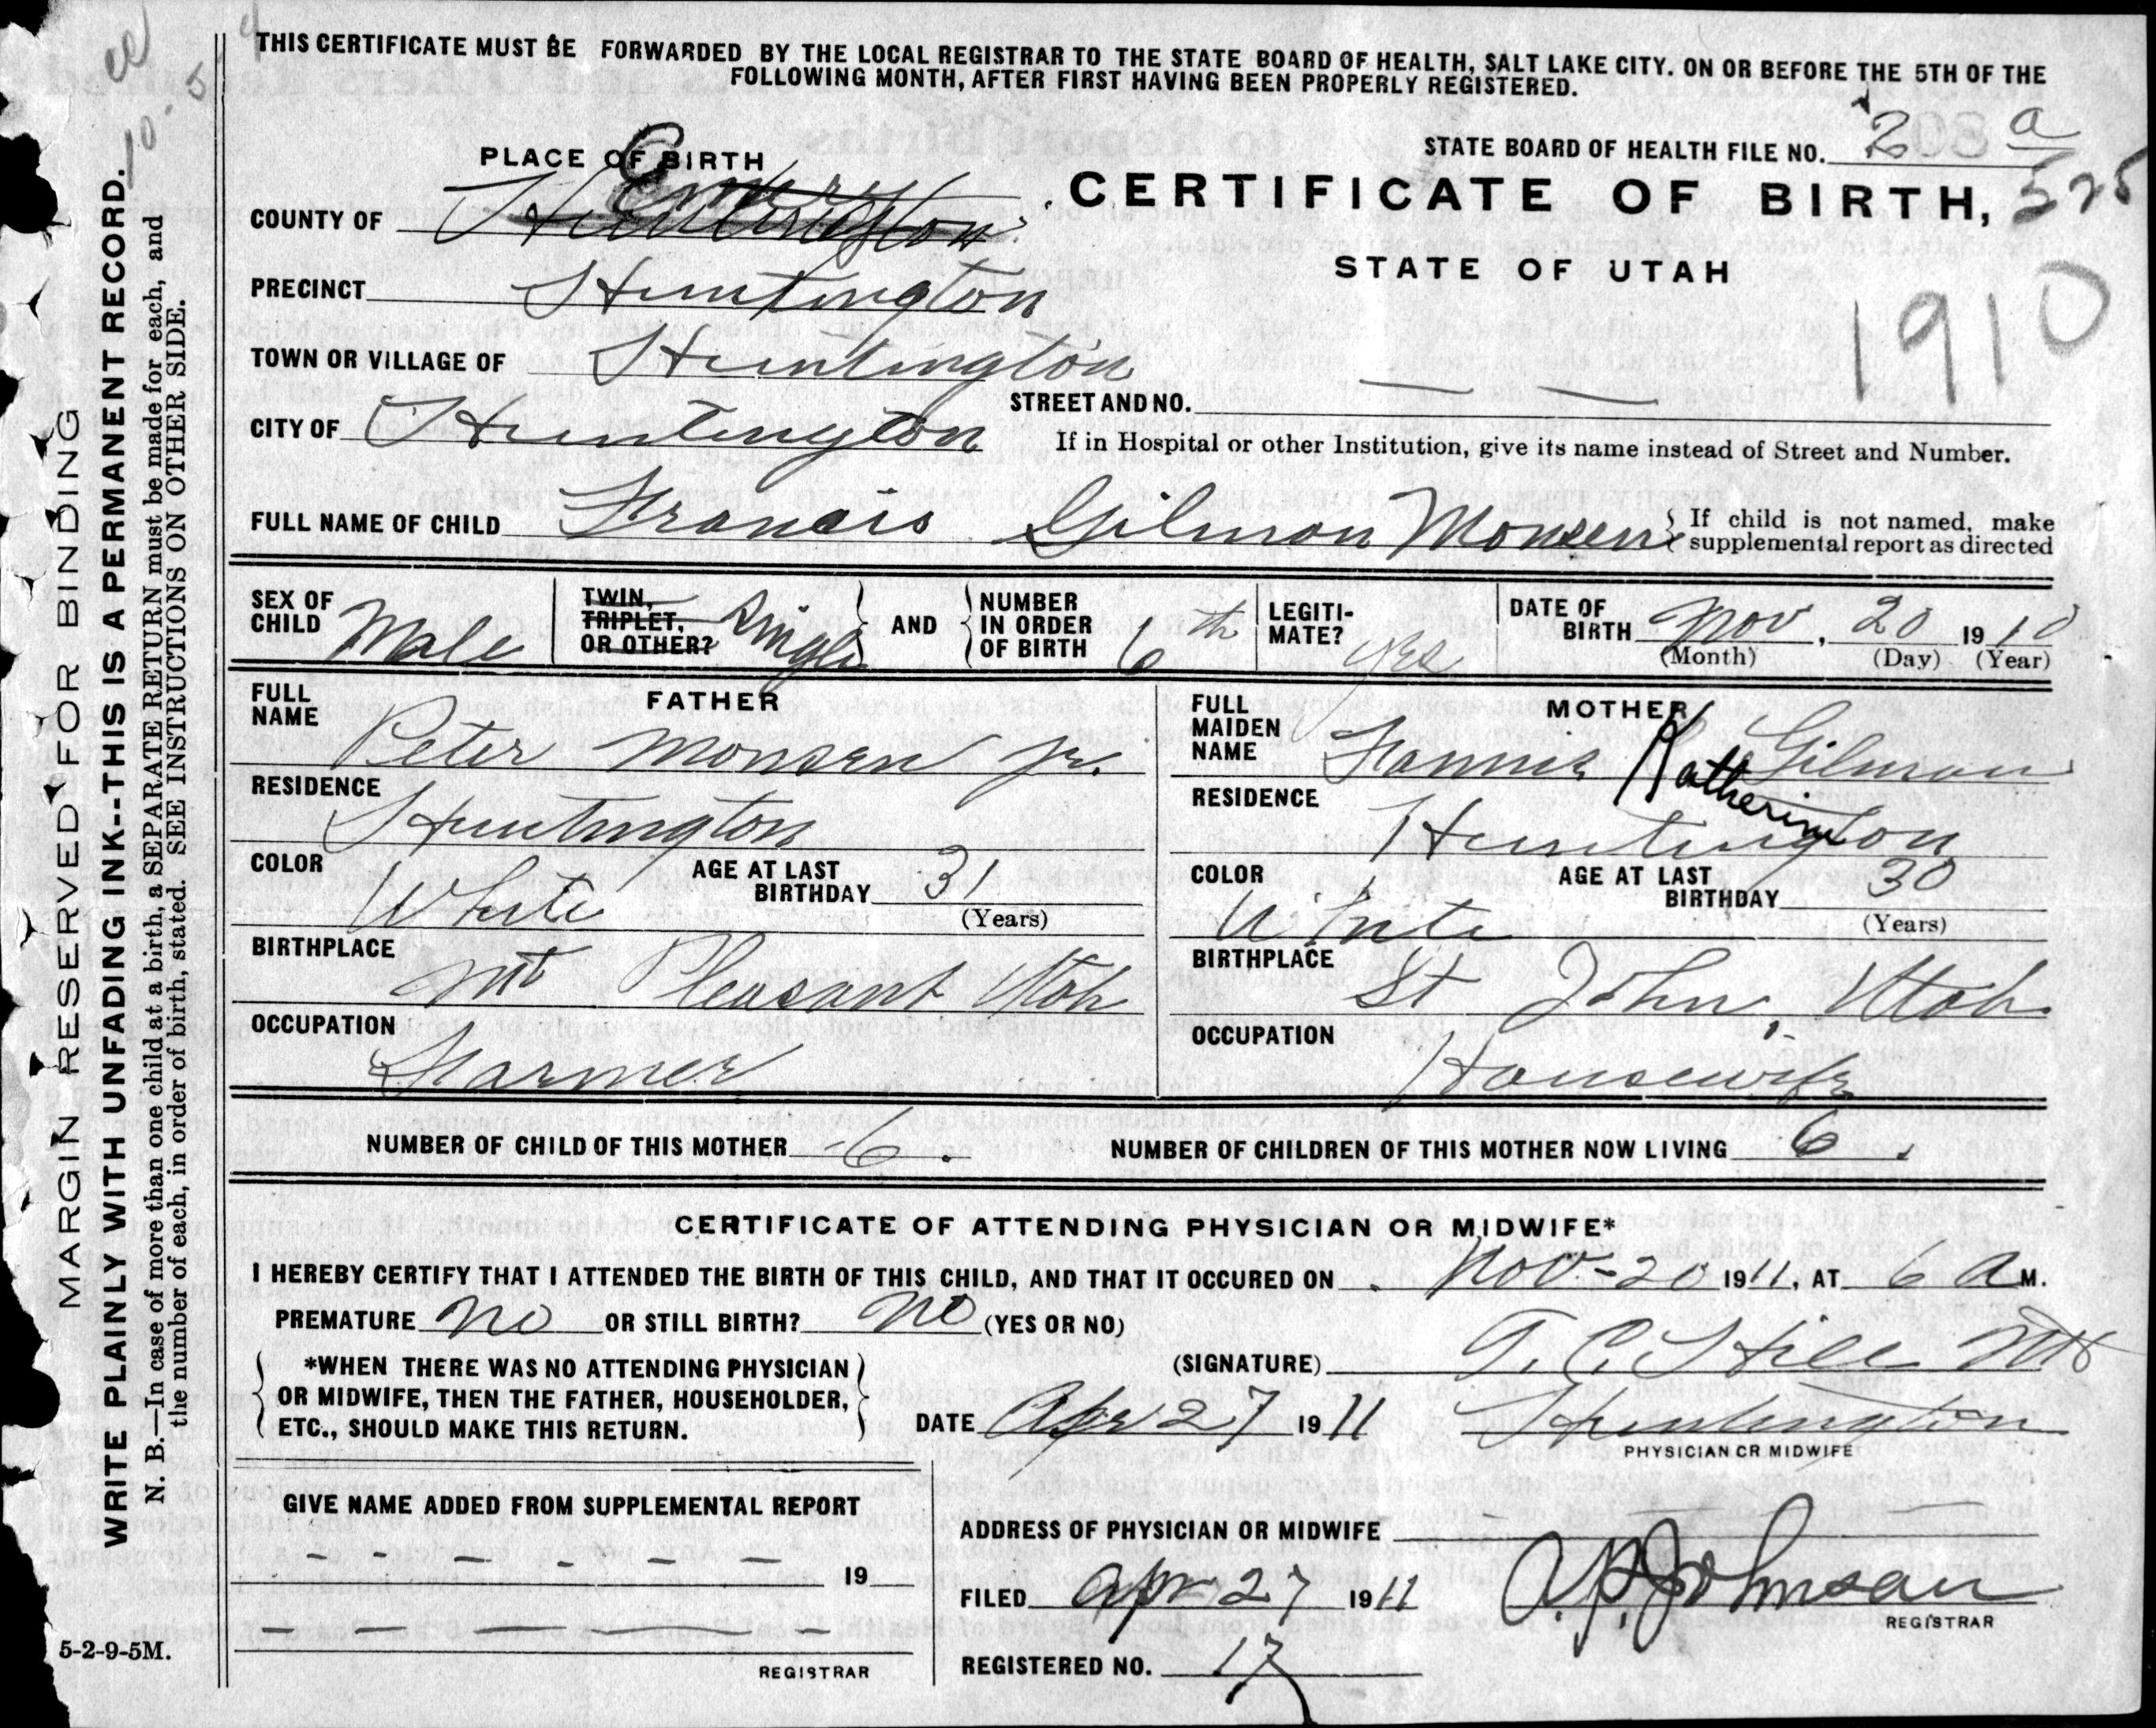 THIS CERTIFICATE MUST BE FORWARDED BY THE LOCAL REGISTRAR TO THE STATE BOARD OF HEALTH, SALT LAKE CITY. ON OR BEFORE THE 5TH OF THE
FOLLOWING MONTH, AFTER FIRST HAVING BEEN PROPERLY REGISTERED.
PLACE OF BIRTH
STATE BOARD OF HEALTH FILE NO. 2 a
325
CERTIFICATE OF BIRTH,
STATE OF UTAH
1910
COUNTY OF Huntington Emery
PRECINCT Huntington
TOWN OR VILLAGE OF Huntington
STREET AND NO. — —
CITY OF Huntington
If in Hospital or other Institution, give its name instead of Street and Number.
FULL NAME OF CHILD Francis Gilman Monsen { If child is not named, make
supplemental report as directed
SEX OF CHILD Male
TWIN, TRIPLET, OR OTHER? Single
AND
NUMBER IN ORDER OF BIRTH 6th
LEGITI-MATE? yes
DATE OF BIRTH Nov, 20 1910
(Month) (Day) (Year)
FATHER
FULL NAME Peter Monsen Jr.
RESIDENCE Huntington
COLOR White
AGE AT LAST BIRTHDAY 31
(Years)
BIRTHPLACE Mt Pleasant Utah
OCCUPATION Farmer
MOTHER
FULL MAIDEN NAME Fannie Katherine Gilman
RESIDENCE Huntington
COLOR White
AGE AT LAST BIRTHDAY 30
(Years)
BIRTHPLACE St John, Utah
OCCUPATION Housewife
NUMBER OF CHILD OF THIS MOTHER -6. NUMBER OF CHILDREN OF THIS MOTHER NOW LIVING 6.
CERTIFICATE OF ATTENDING PHYSICIAN OR MIDWIFE*
I HEREBY CERTIFY THAT I ATTENDED THE BIRTH OF THIS CHILD, AND THAT IT OCCURED ON Nov-20 1911, AT 6 A M.
PREMATURE No OR STILL BIRTH? No (YES OR NO)
*WHEN THERE WAS NO ATTENDING PHYSICIAN
OR MIDWIFE, THEN THE FATHER, HOUSEHOLDER,
ETC., SHOULD MAKE THIS RETURN.
(SIGNATURE) T. C. Hill MD
DATE Apr 27 1911 Huntington
PHYSICIAN OR MIDWIFE
GIVE NAME ADDED FROM SUPPLEMENTAL REPORT
- - - - - - 19
REGISTRAR
ADDRESS OF PHYSICIAN OR MIDWIFE
FILED Apr 27 1911 Johnson
REGISTRAR
REGISTERED NO. 17
5-2-9-5M.
MARGIN RESERVED FOR BINDING
WRITE PLAINLY WITH UNFADING INK--THIS IS A PERMANENT RECORD.
N. B.—In case of more than one child at a birth, a SEPARATE RETURN must be made for each, and
the number of each, in order of birth, stated. SEE INSTRUCTIONS ON OTHER SIDE.